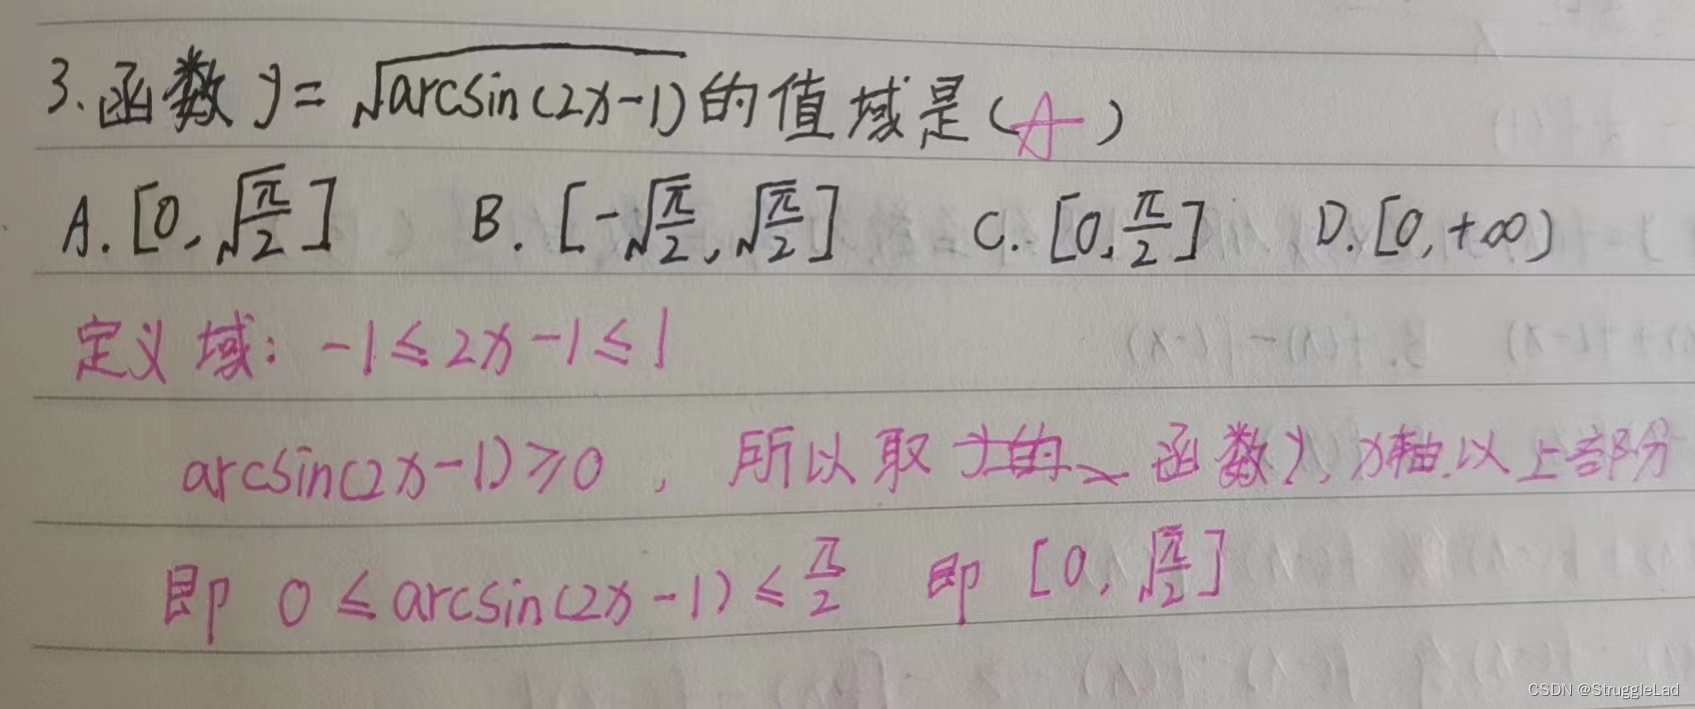 3.函数 y= √arcsin(2x-1) 的值域是(A)
A.[0,√π/2] B.[-√π/2,√π/2] C.[0,π/2] D.[0,+∞)
定义域: -1≤2x-1≤1
arcsin(2x-1)≥0, 所以取 函数y,x轴以上部分
即 0≤arcsin(2x-1)≤π/2 即 [0,√π/2]
CSDN @StruggleLad